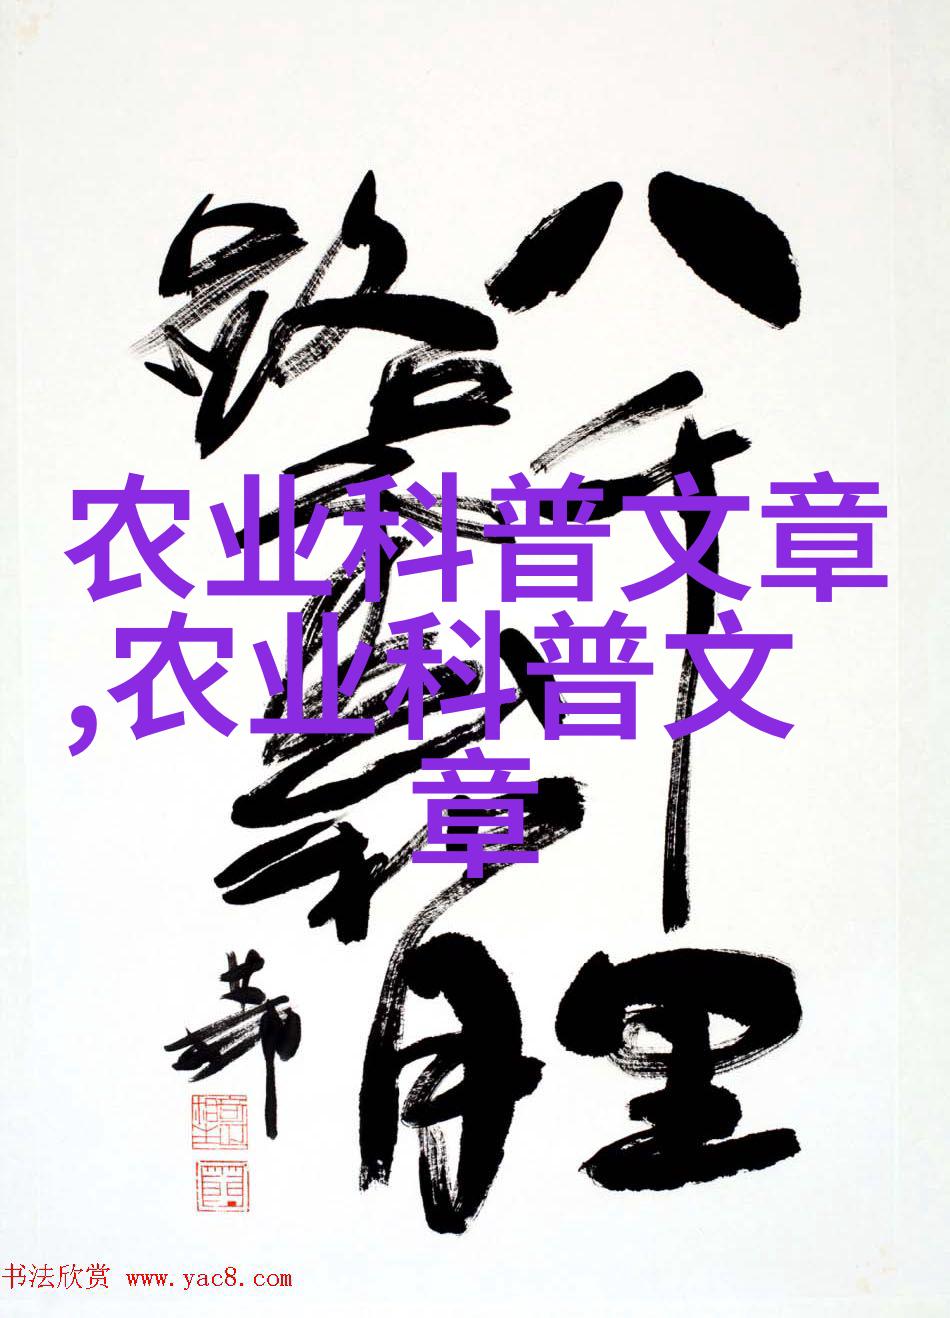 八千里
路云和月
农业科普文章
,农业科普文
章
书法欣赏 www.yac8.com